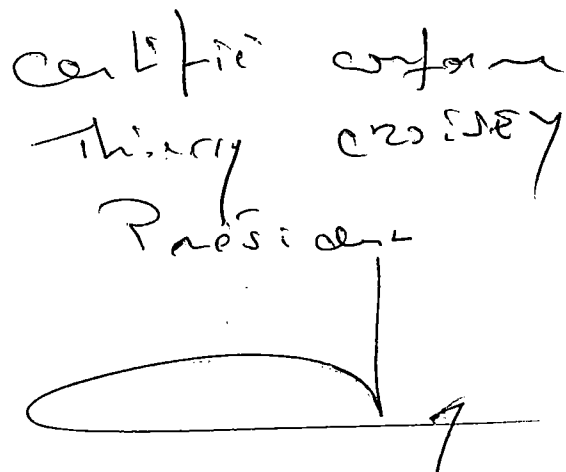 Certifié conforme
Thierry CROISEY
Président